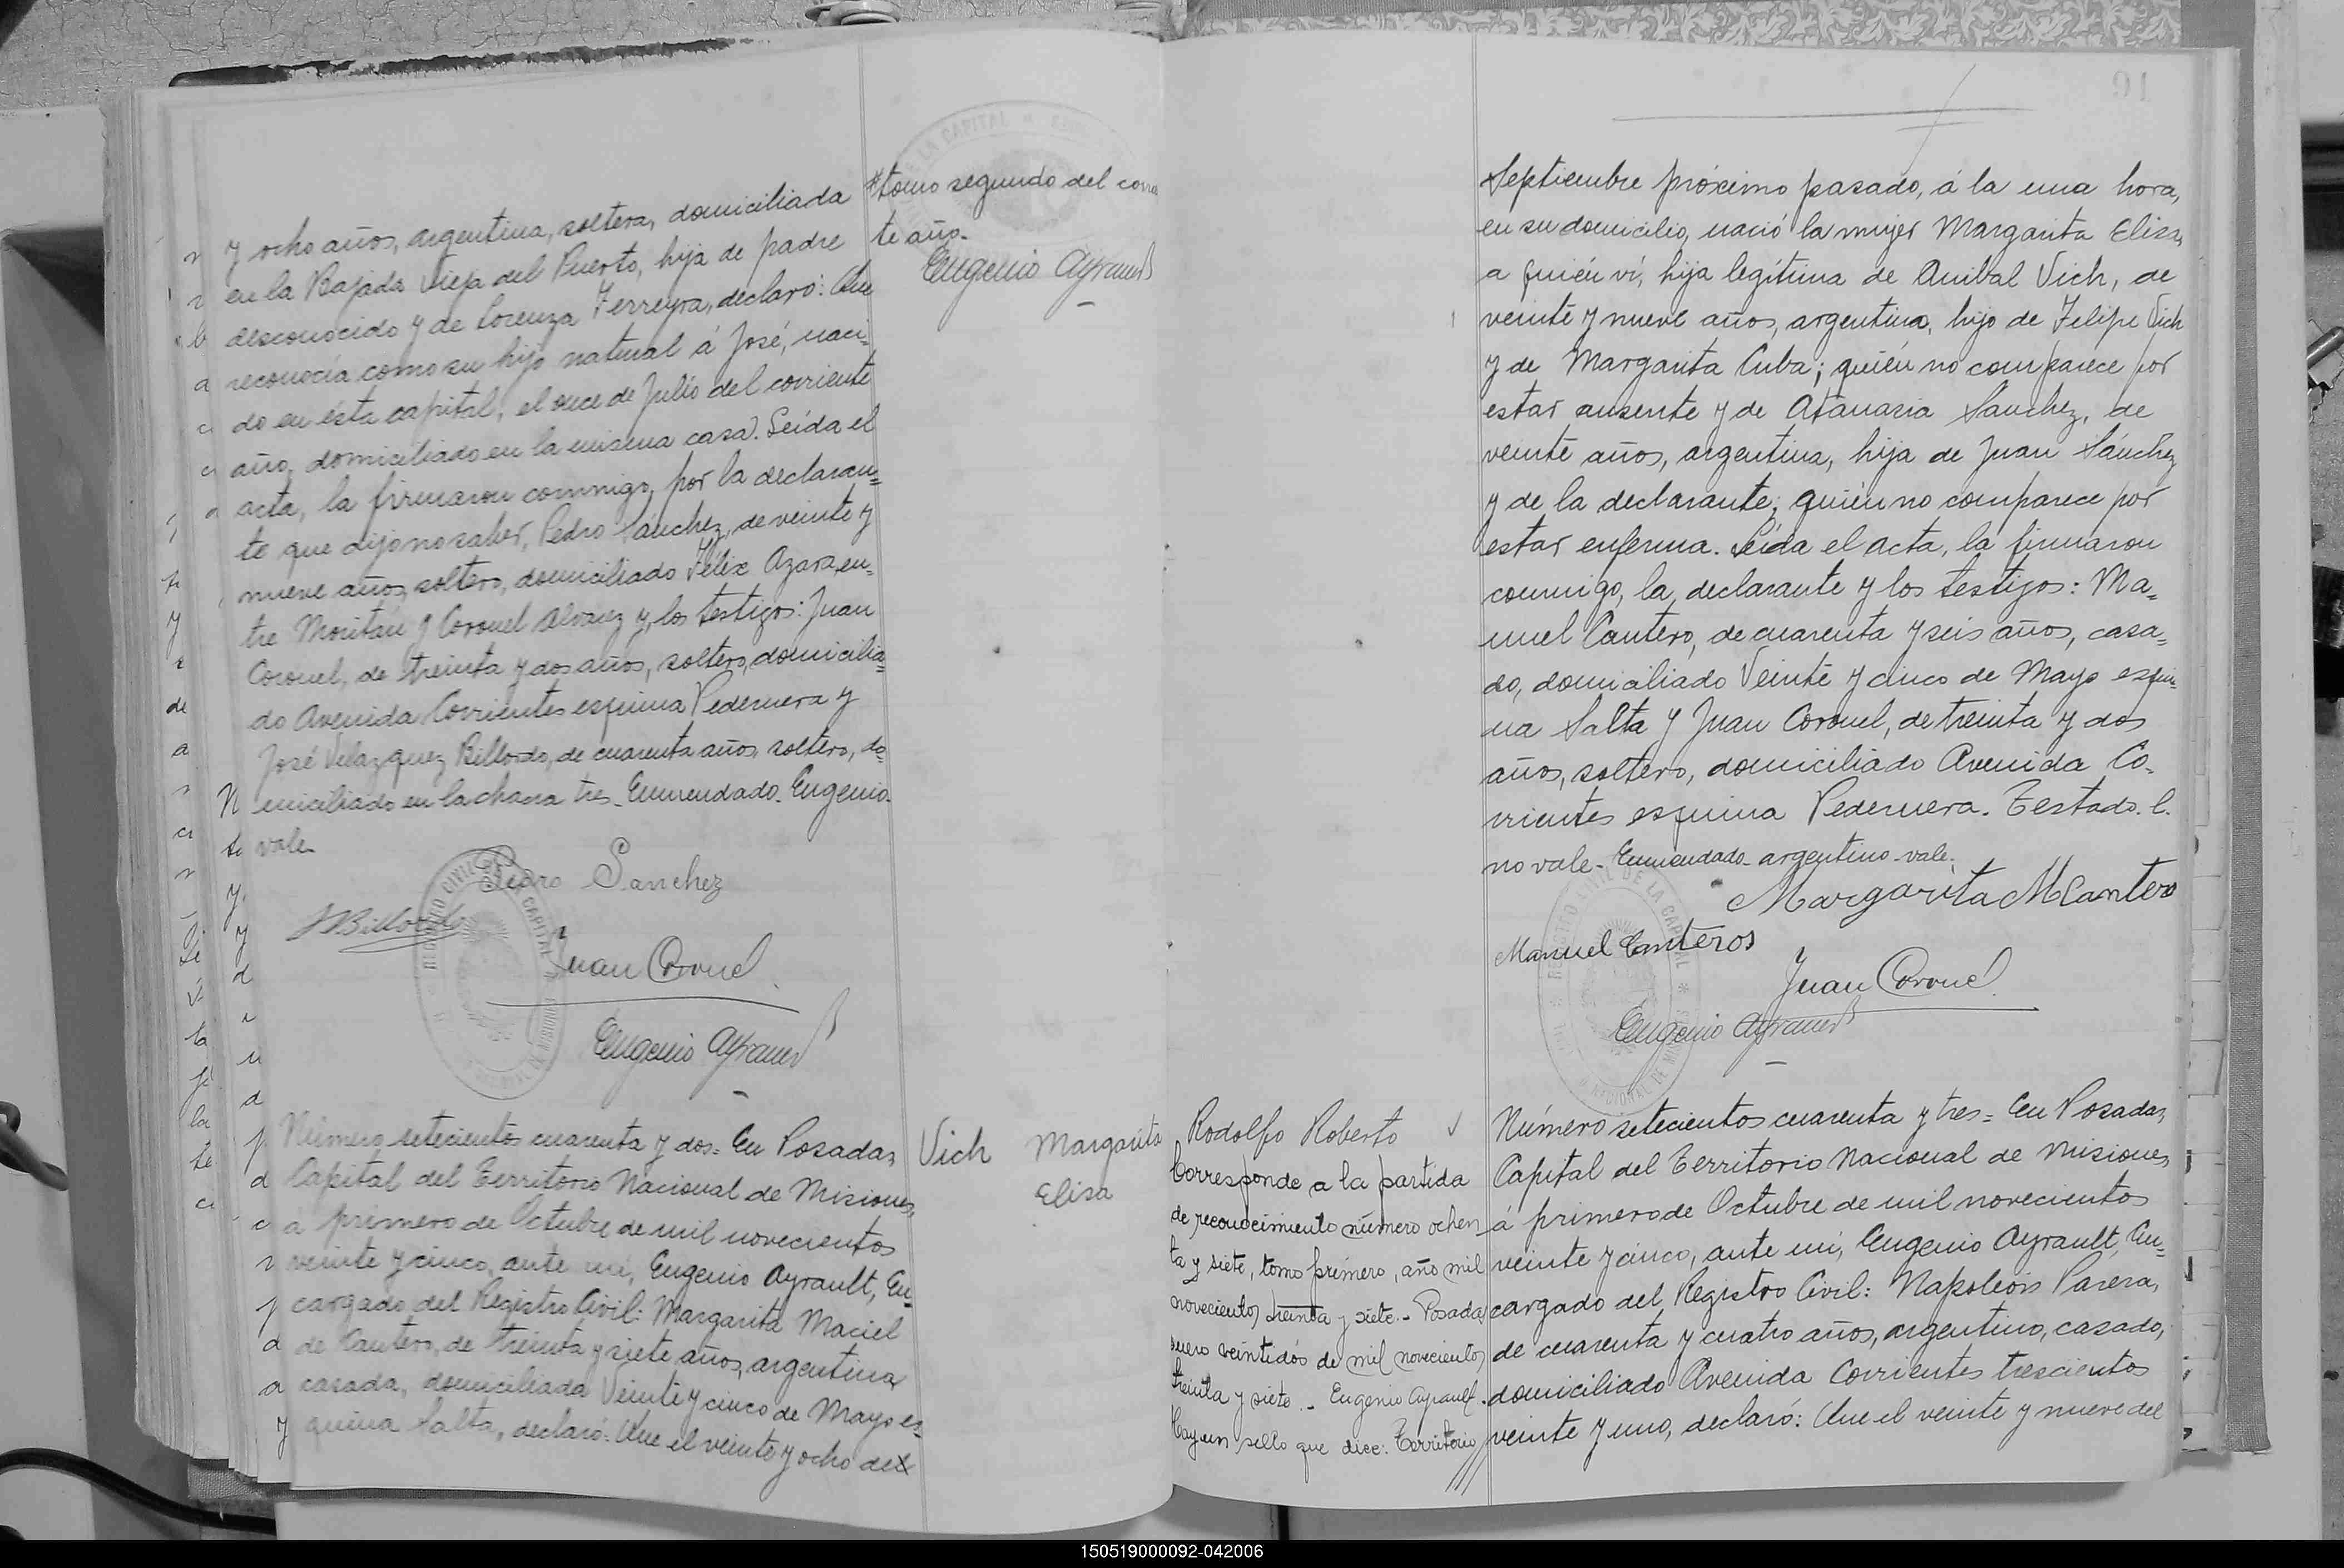 y ocho años, argentina, soltera, domiciliada
en la Bajada Vieja del Puerto, hija de padre
desconocido y de Lorenza Ferreyra, declaró: Que
reconocía como su hijo natural á José, naci=
do en ésta capital, el once de Julio del corriente
año, domiciliado en la misma casa. Leída el
acta, la firmaron conmigo, por la declaran=
te que dijo no saber, Pedro Sánchez, de veinte y
nueve años, soltero, domiciliado Félix Azara, en=
tre Moritán y Coronel Alvarez y los testigos: Juan
Coronel, de treinta y dos años, soltero, domicilia=
do Avenida Corrientes esquina Pedernera y
José Velazquez Billordo, de cuarenta años, soltero, do
miciliado en la chacra tres_ Enmendado_Eugenio_
vale_
Pedro Sanchez
JVBillordo
Juan Coronel
Eugenio Ayrault
tomo segundo del corri
te año.
Eugenio Ayrault
Número setecientos cuarenta y dos= En Posadas,
Capital del Territorio Nacional de Misiones,
á primero de Octubre de mil novecientos
veinte y cinco, ante mí, Eugenio Ayrault, En=
cargado del Registro Civil: Margarita Maciel
de Cantero, de treinta y siete años, argentina,
casada, domiciliada Veinte y cinco de Mayo es=
quina Salta, declaró: Que el veinte y ocho de
Vich Margarita
Elisa
91
Septiembre próximo pasado, á la una hora,
en su domicilio, nació la mujer Margarita Elisa,
a quién ví, hija legítima de Anibal Vich, de
veinte y nueve años, argentino, hijo de Felipe Vich
y de Margarita Cuba; quién no comparece por
estar ausente y de Atanasia Sanchez, de
veinte años, argentina, hija de Juan Sánchez
y de la declarante; quién no comparece por
estar enferma. Leída el acta, la firmaron
conmigo, la declarante y los testigos: Ma=
nuel Cantero, de cuarenta y seis años, casa=
do, domiciliado Veinte y cinco de Mayo esqui=
na Salta y Juan Coronel, de treinta y dos
años, soltero, domiciliado Avenida Co=
rrientes esquina Pedernera. Testado. l.
no vale_ Enmendado_argentino_vale_
Margarita M Cantero
Manuel Canteros
Juan Coronel
Eugenio Ayrault
Rodolfo Roberto
Corresponde a la partida
de reconocimiento número ochen
ta y siete, tomo primero, año mil
novecientos treinta y siete.- Posadas
enero veintidós de mil novecientos
treinta y siete.- Eugenio Ayrault.
Hay un sello que dice: Territorio
Número setecientos cuarenta y tres= En Posadas,
Capital del Territorio Nacional de Misiones,
á primero de Octubre de mil novecientos
veinte y cinco, ante mí, Eugenio Ayrault, En=
cargado del Registro Civil: Napoleón Parera,
de cuarenta y cuatro años, argentino, casado,
domiciliado Avenida Corrientes trescientos
veinte y uno, declaró: Que el veinte y nueve del
150519000092-042006